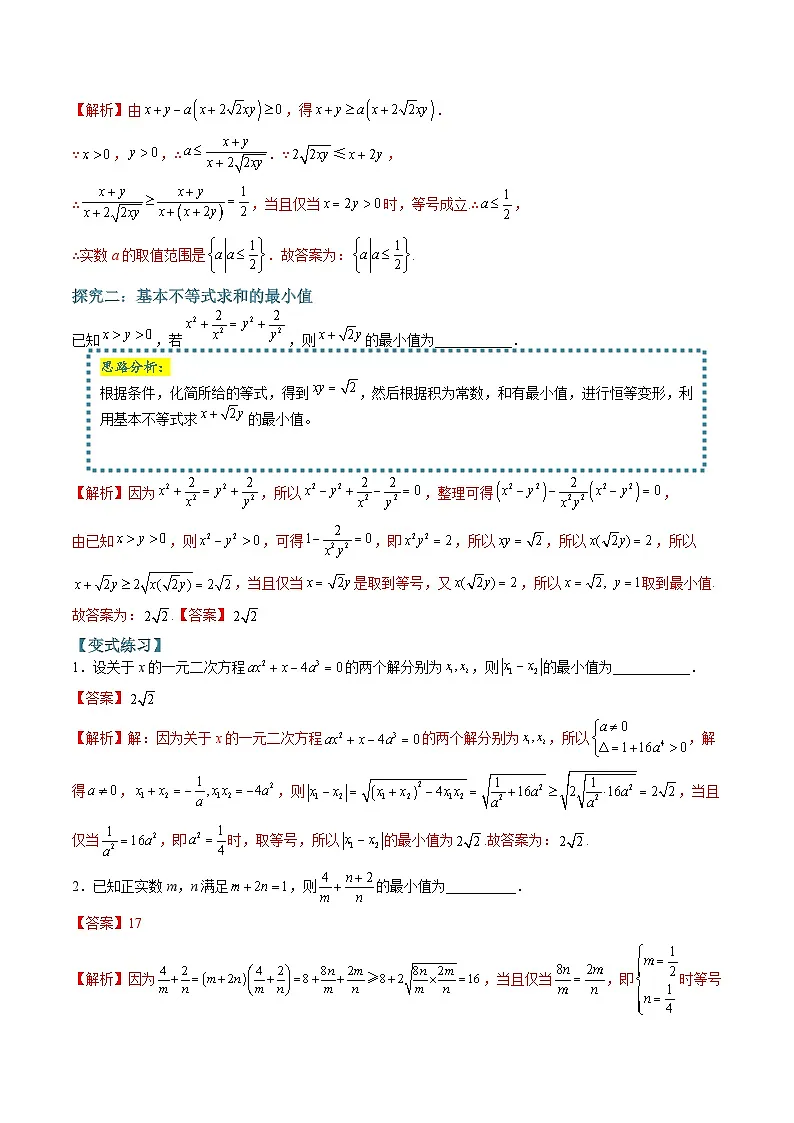 【解析】由 $x+y-a\left(x+2\sqrt{2xy}\right)\geq 0$,得 $x+y\geq a\left(x+2\sqrt{2xy}\right)$.
∵$x>0$,$y>0$,∴$a\leq\frac{x+y}{x+2\sqrt{2xy}}$.∵$2\sqrt{2xy}\leq x+2y$,
∴$\frac{x+y}{x+2\sqrt{2xy}}\geq\frac{x+y}{x+(x+2y)}=\frac{1}{2}$,当且仅当 $x=2y>0$ 时,等号成立.∴$a\leq\frac{1}{2}$,
∴实数 a 的取值范围是 $\left\{a\middle|a\leq\frac{1}{2}\right\}$.故答案为:$\left\{a\middle|a\leq\frac{1}{2}\right\}$.
探究二:基本不等式求和的最小值
已知 $x>y>0$,若 $x^2+\frac{2}{x^2}=y^2+\frac{2}{y^2}$,则 $x+\sqrt{2}y$ 的最小值为___________.
思路分析:
根据条件,化简所给的等式,得到 $xy=\sqrt{2}$,然后根据积为常数,和有最小值,进行恒等变形,利
用基本不等式求 $x+\sqrt{2}y$ 的最小值。
【解析】因为 $x^2+\frac{2}{x^2}=y^2+\frac{2}{y^2}$,所以 $x^2-y^2+\frac{2}{x^2}-\frac{2}{y^2}=0$,整理可得 $(x^2-y^2)-\frac{2}{x^2y^2}(x^2-y^2)=0$,
由已知 $x>y>0$,则 $x^2-y^2>0$,可得 $1-\frac{2}{x^2y^2}=0$,即 $x^2y^2=2$,所以 $xy=\sqrt{2}$,所以 $x(\sqrt{2}y)=2$,所以
$x+\sqrt{2}y\geq 2\sqrt{x(\sqrt{2}y)}=2\sqrt{2}$,当且仅当 $x=\sqrt{2}y$ 是取到等号,又 $x(\sqrt{2}y)=2$,所以 $x=\sqrt{2},\ y=1$取到最小值.
故答案为:$2\sqrt{2}$.【答案】$2\sqrt{2}$
【变式练习】
1.设关于 x 的一元二次方程 $ax^2+x-4a^3=0$ 的两个解分别为 $x_1,x_2$,则 $|x_1-x_2|$ 的最小值为___________.
【答案】$2\sqrt{2}$
【解析】解:因为关于 x 的一元二次方程 $ax^2+x-4a^3=0$ 的两个解分别为 $x_1,x_2$,所以 $\begin{cases}a\neq 0\\ \Delta=1+16a^4>0\end{cases}$,解
得 $a\neq 0$,$x_1+x_2=-\frac{1}{a},x_1x_2=-4a^2$,则 $|x_1-x_2|=\sqrt{(x_1+x_2)^2-4x_1x_2}=\sqrt{\frac{1}{a^2}+16a^2}\geq\sqrt{2\sqrt{\frac{1}{a^2}\cdot 16a^2}}=2\sqrt{2}$,当且
仅当 $\frac{1}{a^2}=16a^2$,即 $a^2=\frac{1}{4}$ 时,取等号,所以 $|x_1-x_2|$ 的最小值为 $2\sqrt{2}$.故答案为:$2\sqrt{2}$.
2.已知正实数 m,n 满足 $m+2n=1$,则 $\frac{4}{m}+\frac{n+2}{n}$ 的最小值为__________.
【答案】17
【解析】因为 $\frac{4}{m}+\frac{2}{n}=(m+2n)\left(\frac{4}{m}+\frac{2}{n}\right)=8+\frac{8n}{m}+\frac{2m}{n}\geqslant 8+2\sqrt{\frac{8n}{m}\times\frac{2m}{n}}=16$,当且仅当 $\frac{8n}{m}=\frac{2m}{n}$,即 $\begin{cases}m=\frac{1}{2}\\ n=\frac{1}{4}\end{cases}$ 时等号